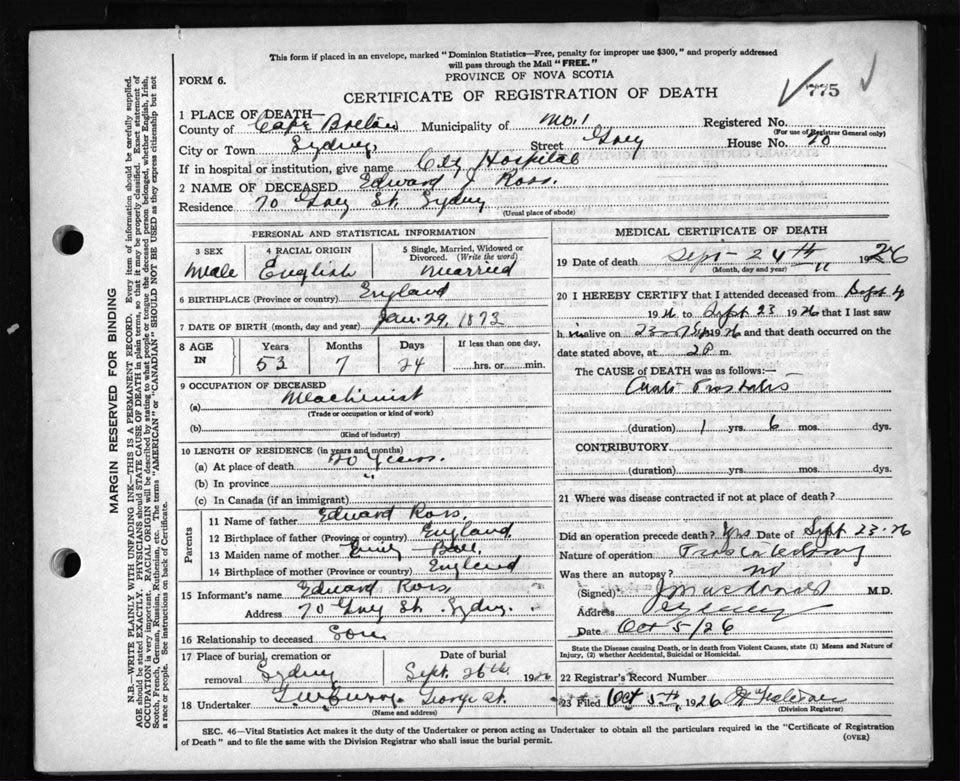 This form if placed in an envelope, marked "Dominion Statistics—Free, penalty for improper use $300," and properly addressed
will pass through the Mail "FREE."
PROVINCE OF NOVA SCOTIA
FORM 6.
775
CERTIFICATE OF REGISTRATION OF DEATH
1 PLACE OF DEATH—
County of Cape Breton Municipality of No. 1 Registered No.
(For use of Registrar General only)
City or Town Sydney. Street House No. 70
If in hospital or institution, give name City Hospital
2 NAME OF DECEASED Edward J Ross.
Residence 70 St. Sydney
(Usual place of abode)
PERSONAL AND STATISTICAL INFORMATION
3 SEX 4 RACIAL ORIGIN 5 Single, Married, Widowed or Divorced. (Write the word)
Male English Married
6 BIRTHPLACE (Province or country) England
7 DATE OF BIRTH (month, day and year) Jan. 29, 1873
8 AGE IN Years Months Days If less than one day,
53 7 24 hrs. or min.
9 OCCUPATION OF DECEASED
(a) Machinist
(Trade or occupation or kind of work)
(b)
(Kind of industry)
10 LENGTH OF RESIDENCE (in years and months)
(a) At place of death 20 Years.
(b) In province "
(c) In Canada (if an immigrant)
Parents
11 Name of father Edward Ross,
12 Birthplace of father (Province or country) England,
13 Maiden name of mother Emily
14 Birthplace of mother (Province or country) England
15 Informant's name Edward Ross,
Address 70 St. Sydney.
16 Relationship to deceased Son.
17 Place of burial, cremation or removal Date of burial
Sydney Sept. 26th. 1926
18 Undertaker George St.
(Name and address)
MEDICAL CERTIFICATE OF DEATH
19 Date of death Sept- 24th 1926
(Month, day and year)
20 I HEREBY CERTIFY that I attended deceased from Sept 4
1926 to Sept 23 1926 that I last saw
h im alive on 23 1926 and that death occurred on
date stated above, at 2 P m.
The CAUSE of DEATH was as follows:—
(duration) 1 yrs. 6 mos. dys.
CONTRIBUTORY
(duration) yrs. mos. dys.
21 Where was disease contracted if not at place of death?
Did an operation precede death? Yes Date of Sept 23-26
Nature of operation Prostatectomy
Was there an autopsy? no
(Signed) J Macdonald M.D.
Address Sydney
Date Oct 5/26
State the Disease causing Death, or in death from Violent Causes, state (1) Means and Nature of
Injury, (2) whether Accidental, Suicidal or Homicidal.
22 Registrar's Record Number
23 Filed Oct 5th, 1926
(Division Registrar)
SEC. 46—Vital Statistics Act makes it the duty of the Undertaker or person acting as Undertaker to obtain all the particulars required in the "Certificate of Registration
of Death" and to file the same with the Division Registrar who shall issue the burial permit.
(OVER)
MARGIN RESERVED FOR BINDING
N.B.—WRITE PLAINLY WITH UNFADING INK—THIS IS A PERMANENT RECORD. Every item of information should be carefully supplied.
AGE should be stated EXACTLY. PHYSICIANS should STATE CAUSE OF DEATH in plain terms, so that it may be properly classified. Exact statement of
OCCUPATION is very important. RACIAL ORIGIN will be described by stating to what people or tongue the deceased person belonged, whether English, Irish,
Scotch, French, German, Russian, Ruthenian, etc. The terms "AMERICAN" or "CANADIAN" SHOULD NOT BE USED as they express citizenship but not
a race or people. See instructions on back of Certificate.